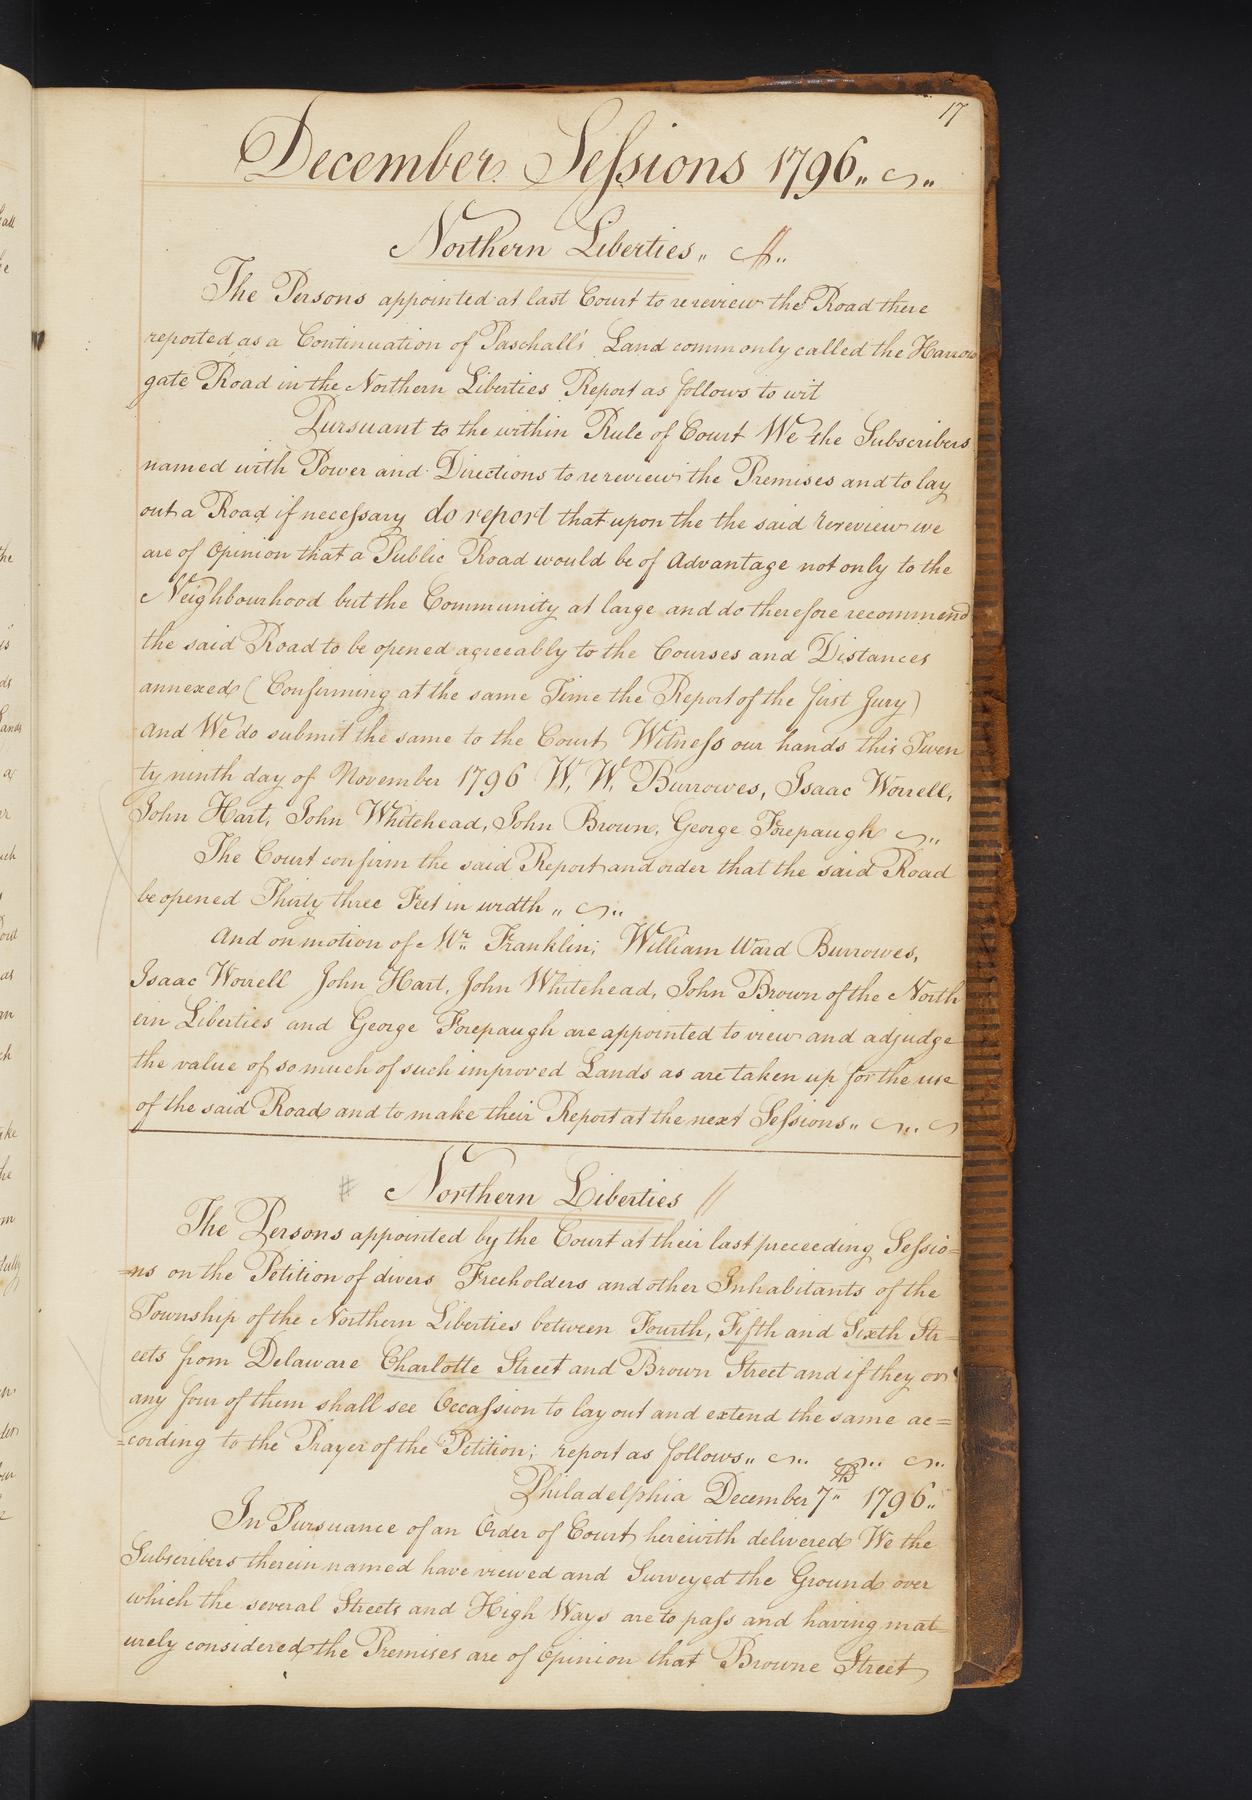 17
December Sessions 1796
Northern Liberties
The Persons appointed at last Court to rereview the Road there
reported as a Continuation of Paschall's Land commonly called the Harrow
gate Road in the Northern Liberties Report as follows to wit
Pursuant to the within Rule of Court We the Subscribers
named with Power and Directions to rereview the Premises and to lay
out a Road if necessary do report that upon the the said rereview we
are of Opinion that a Public Road would be of Advantage not only to the
Neighbourhood but the Community at large and do therefore recommend
the said Road to be opened agreeably to the Courses and Distances
annexed (Confirming at the same Time the Report of the first Jury)
And We do submit the same to the Court Witness our hands this Twen
ty ninth day of November 1796 W. W. Burrowes, Isaac Worrell,
John Hart, John Whitehead, John Brown, George Forepaugh
The Court confirm the said Report and order that the said Road
be opened Thirty three Feet in width
And on motion of Mr. Franklin; William Ward Burrowes,
Isaac Worrell John Hart, John Whitehead, John Brown of the North
ern Liberties and George Forepaugh are appointed to view and adjudge
the value of so much of such improved Lands as are taken up for the use
of the said Road and to make their Report at the next Sessions
# Northern Liberties //
The Persons appointed by the Court at their last preceeding Sessio=
=ns on the Petition of divers Freeholders and other Inhabitants of the
Township of the Northern Liberties between Fourth, Fifth and Sixth Str=
eets from Delaware Charlotte Street and Brown Street and if they or
any four of them shall see Occassion to lay out and extend the same ac=
=cording to the Prayer of the Petition; report as follows
Philadelphia December 7th 1796
In Pursuance of an Order of Court herewith delivered We the
Subscribers therein named have viewed and Surveyed the Ground over
which the several Streets and High Ways are to pass and having mat=
urely considered the Premises are of Opinion that Browne Street